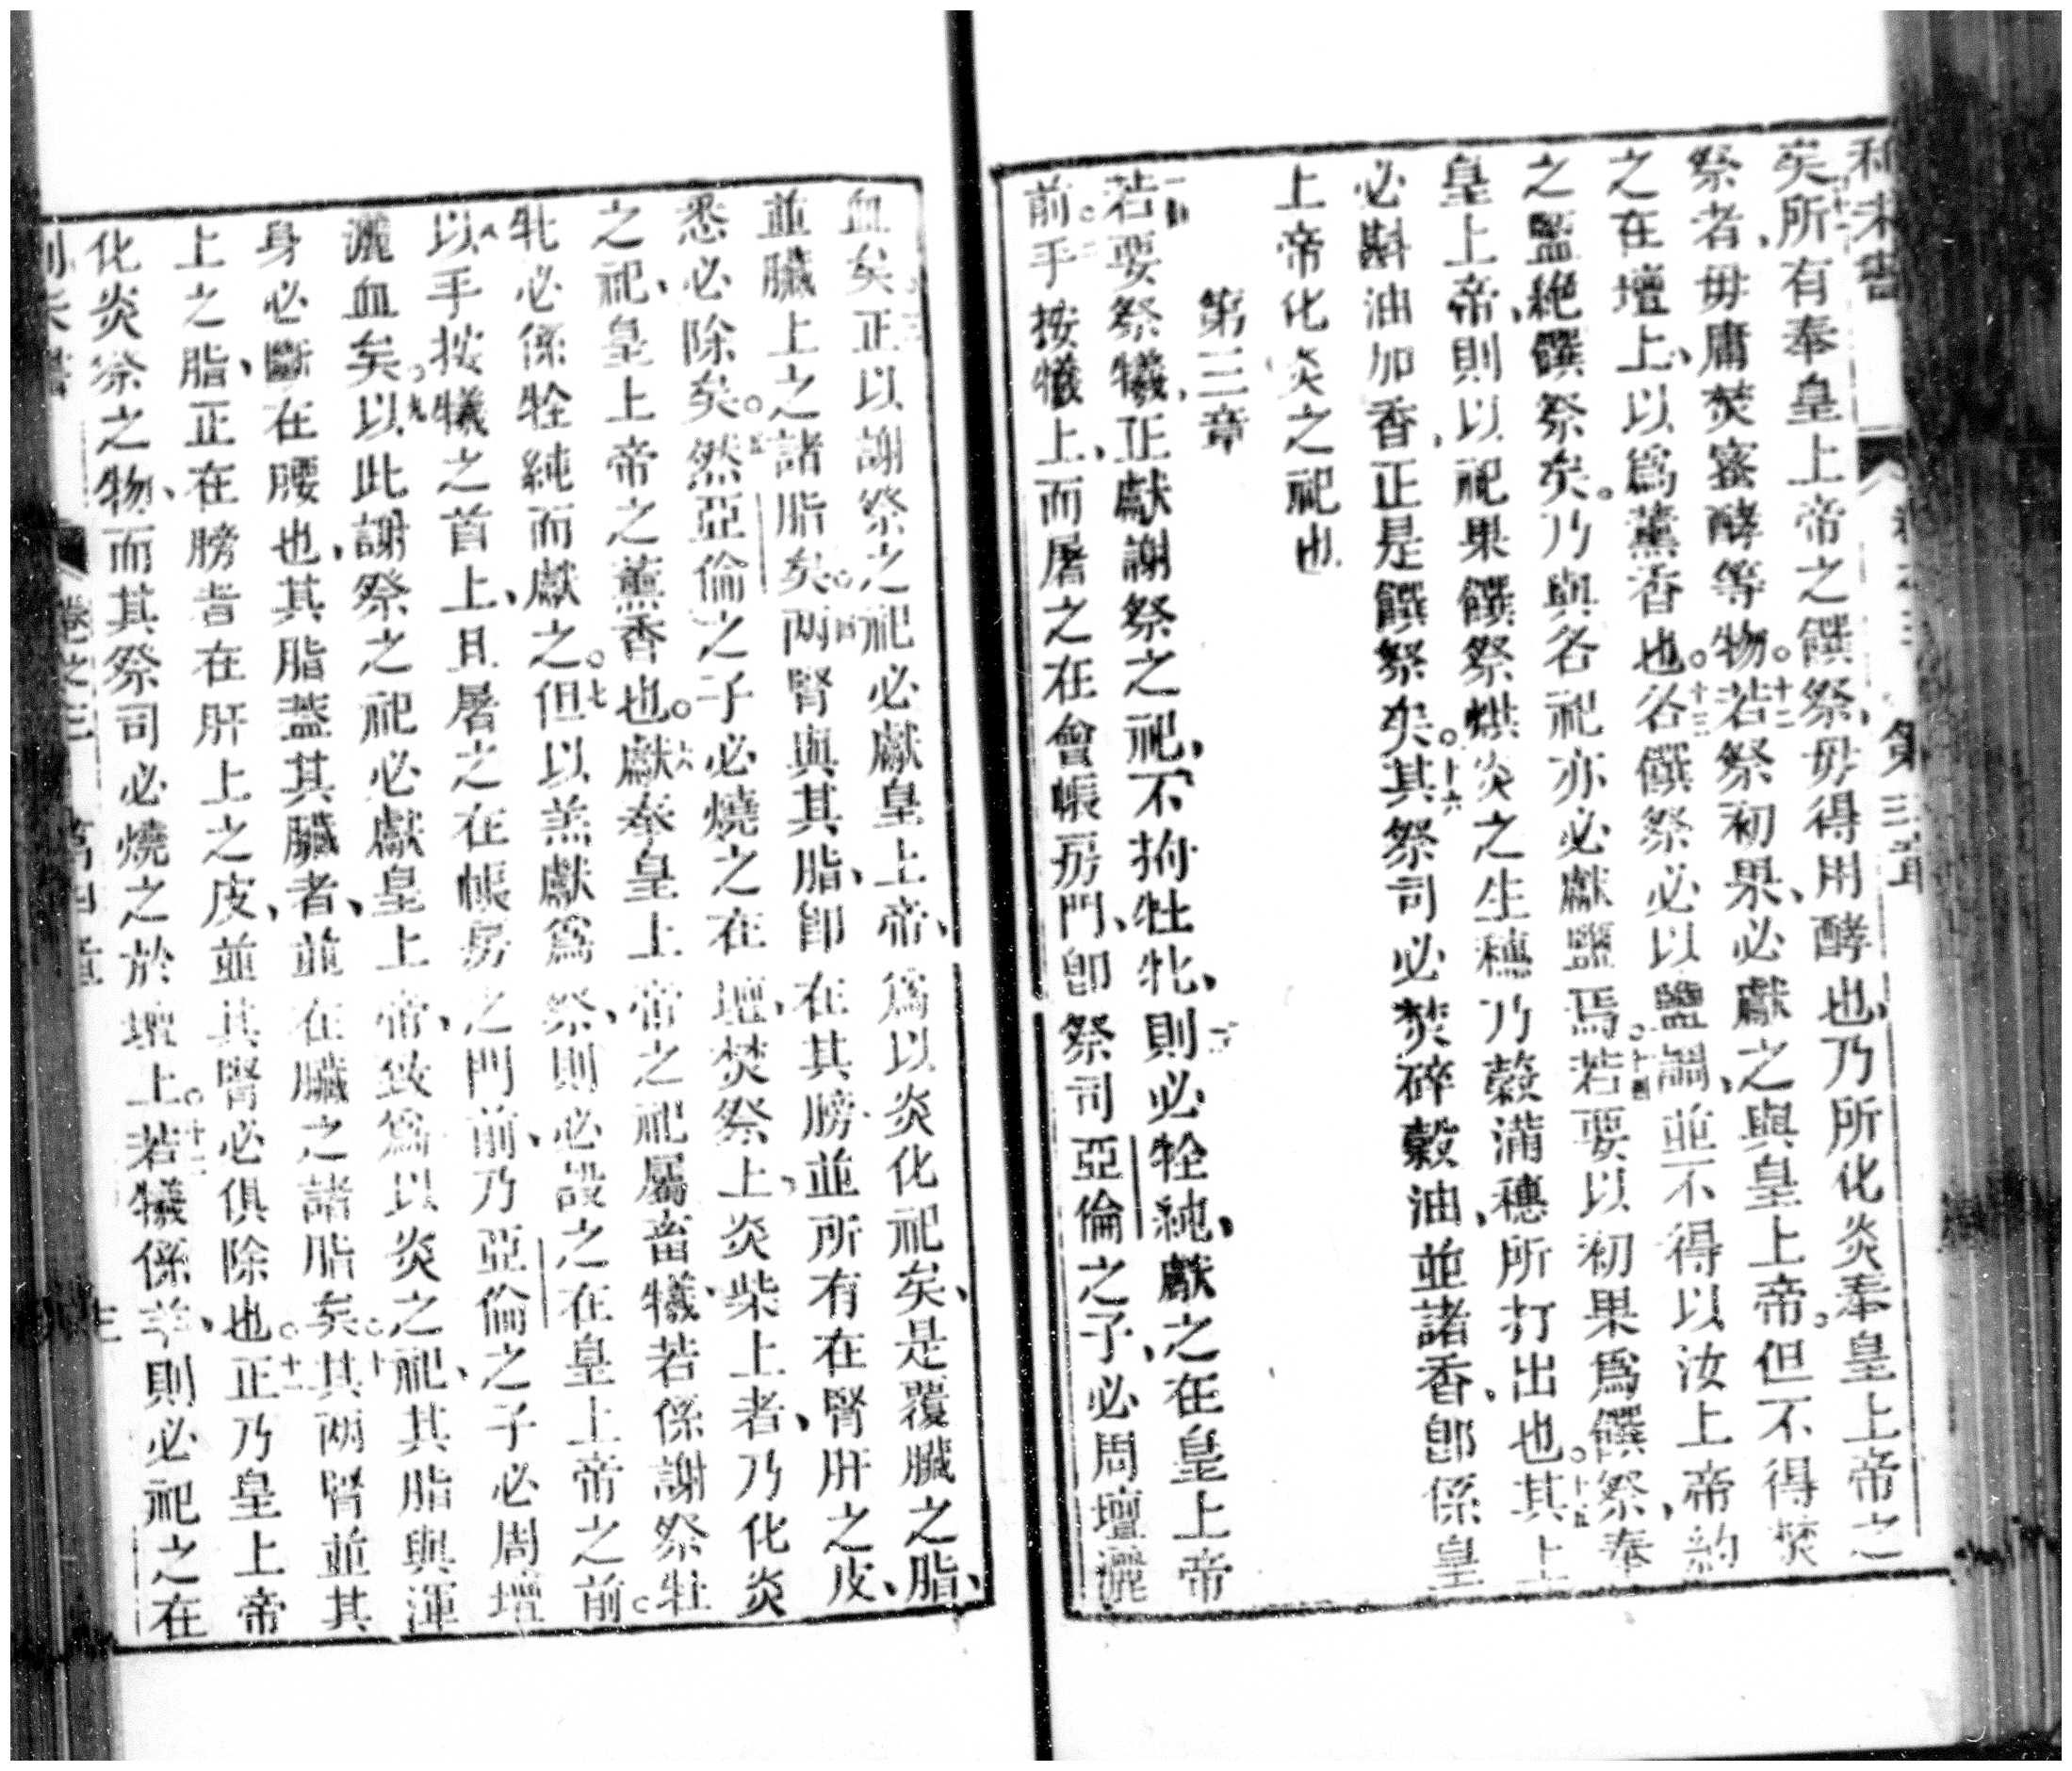 利未書
卷之三 第三章
矣。十一所有奉皇上帝之饌祭、毋得用酵也、乃所化炎奉皇上帝之
祭者、毋庸焚蜜酵等物。十二若祭初果、必獻之與皇上帝。但不得焚
之在壇上、以爲薰香也。十三各饌祭必以鹽調、並不得以汝上帝約
之鹽絶饌祭矣。乃與各祀亦必獻鹽焉。十四若要以初果爲饌祭、奉
皇上帝、則以祀果饌祭烘炎之生穗乃穀滿穗所打出也。十五其上
必斟油加香、正是饌祭矣。十六其祭司必焚碎穀油、並諸香、卽係皇
上帝化炎之祀也
第三章
一若要祭犧、正獻謝祭之祀、不拘牡牝、則必牷純、獻之在皇上帝
前。二手按犧上、而屠之在會帳房門、卽祭司亞倫之子、必周壇灑
血矣。三正以謝祭之祀必獻皇上帝、爲以炎化祀矣、是覆臟之脂、
並臟上之諸脂矣。四兩腎與其脂、卽在其膀並所有在腎肝之皮、
悉必除矣。五然亞倫之子必燒之在壇、焚祭上、炎柴上者、乃化炎
之祀、皇上帝之薰香也。六獻奉皇上帝之祀屬畜犧、若係謝祭牡
牝必係牷純而獻之。七但以羔獻爲祭、則必設之在皇上帝之前。
八以手按犧之首上、且屠之在帳房之門前、乃亞倫之子必周壇
灑血矣。九以此謝祭之祀必獻皇上帝、致爲以炎之祀、其脂與渾
身必斷在腰也、其脂蓋其臟者、並在臟之諸脂矣。十其兩腎並其
上之脂、正在膀者在肝上之皮、並其腎必俱除也。十一正乃皇上帝
化炎祭之物、而其祭司必燒之於壇上。十二若犧係羊、則必祀之在
利未書
卷之三 第四章
七